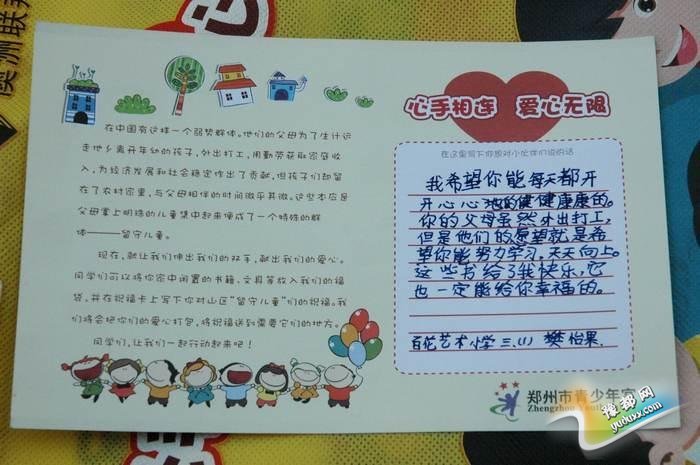 澳洲联邦
在中国有这样一个弱势群体。他们的父母为了生计远
走他乡离开年幼的孩子，外出打工，用勤劳获取家庭收
入，为经济发展和社会稳定作出了贡献，但孩子们却留
在了农村家里，与父母相伴的时间微乎其微。这些本应是
父母掌上明珠的儿童集中起来便成了一个特殊的群
体——留守儿童。
现在，献上我们伸出我们的双手，献出我们的爱心。
同学们可以将你家中闲置的书籍、文具等放入我们的福
袋，并在祝福卡上写下你对山区“留守儿童”们的祝福。我
们将会把你们的爱心打包，将祝福送到需要它们的地方。
同学们，让我们一起行动起来吧！
心手相连 爱心无限
在这里写下你想对小伙伴们说的话
我希望你能每天都开
开心心地的健健康康的。
你的父母虽然外出打工，
但是他们的愿望就是希
望你能努力学习，天天向上。
这些书给了我快乐，它
也一定能给你幸福的。
百花艺术小学 三.(1) 樊怡果.
郑州市青少年宫
Zhengzhou Youth
豫都网
yuduxx.com